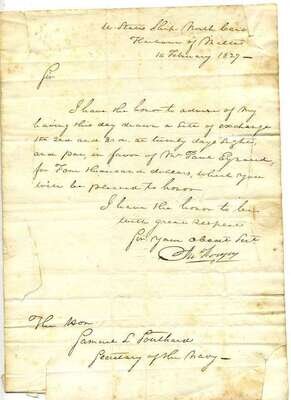 U States Ship North Caro
Harbour of
February 1827 –
Sir
I have the honor to advise of my
having this day drawn a sett of exchange
1st 2nd and 3rd at twenty days sight,
and pay in favor of Mr Paul Eynaud,
for Four thousand dollars, which you
will be pleased to honor
I have the honor to be
with great respect
Sir your obedt Sert
The Hon
Samuel L Southard
Secretary of the Navy –